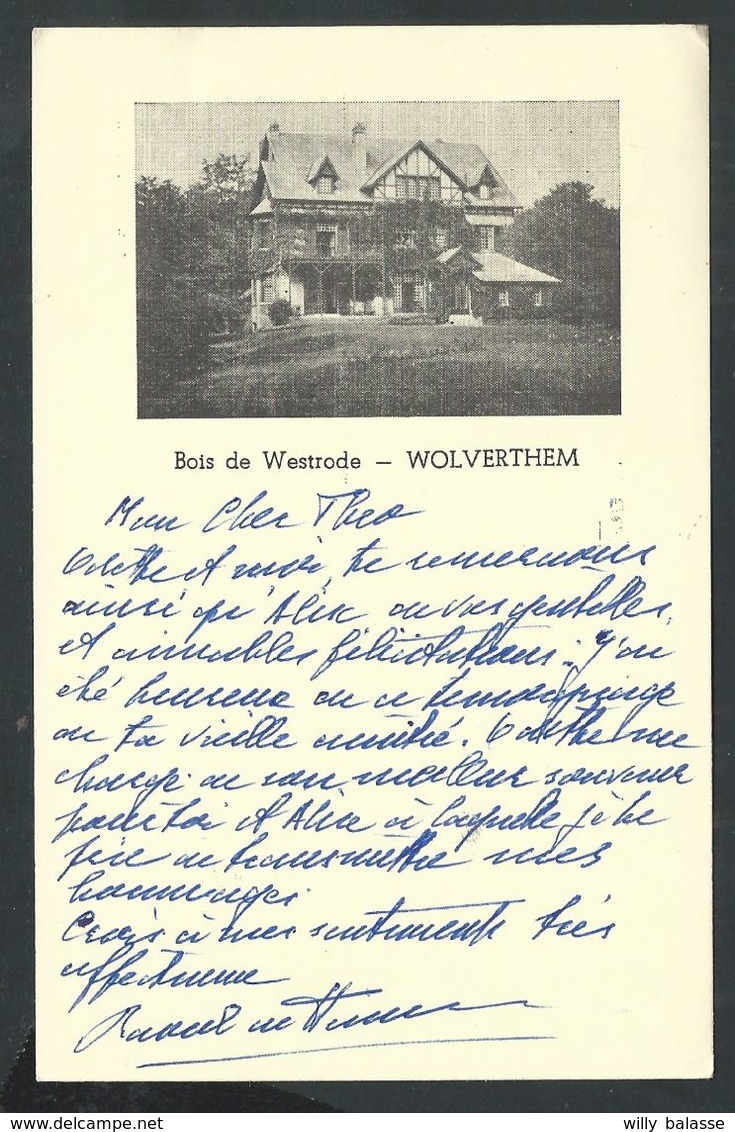 Bois de Westrode — WOLVERTHEM
Mon Cher Theo
Odette et moi, te remercions
ainsi qu'Alice de vos gentilles
et aimables félicitations. J'ai
été heureux de ce témoignage
de ta vieille amitié. Odette me
charge de son meilleur souvenir
pour toi et Alice à laquelle je te
prie de transmettre mes
hommages.
Crois à mes sentiments très
affectueux
Raoul de
willy balasse